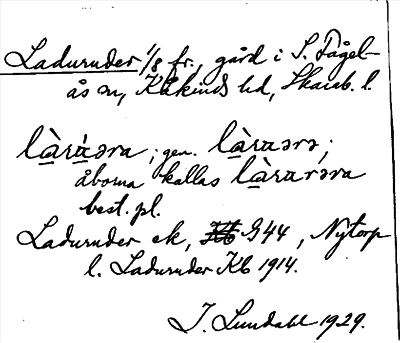 Laduruder 1/8 fr., gård i S. Fågel-
ås sn, Kåkinds hd, Skarab. l.
làrúəra; gen. làruərə;
åborna kallas làrurəra
best. pl.
Laduruder ek, G44, Nytorp
l. Laduruder Kb 1914.
I. Lundahl 1929.